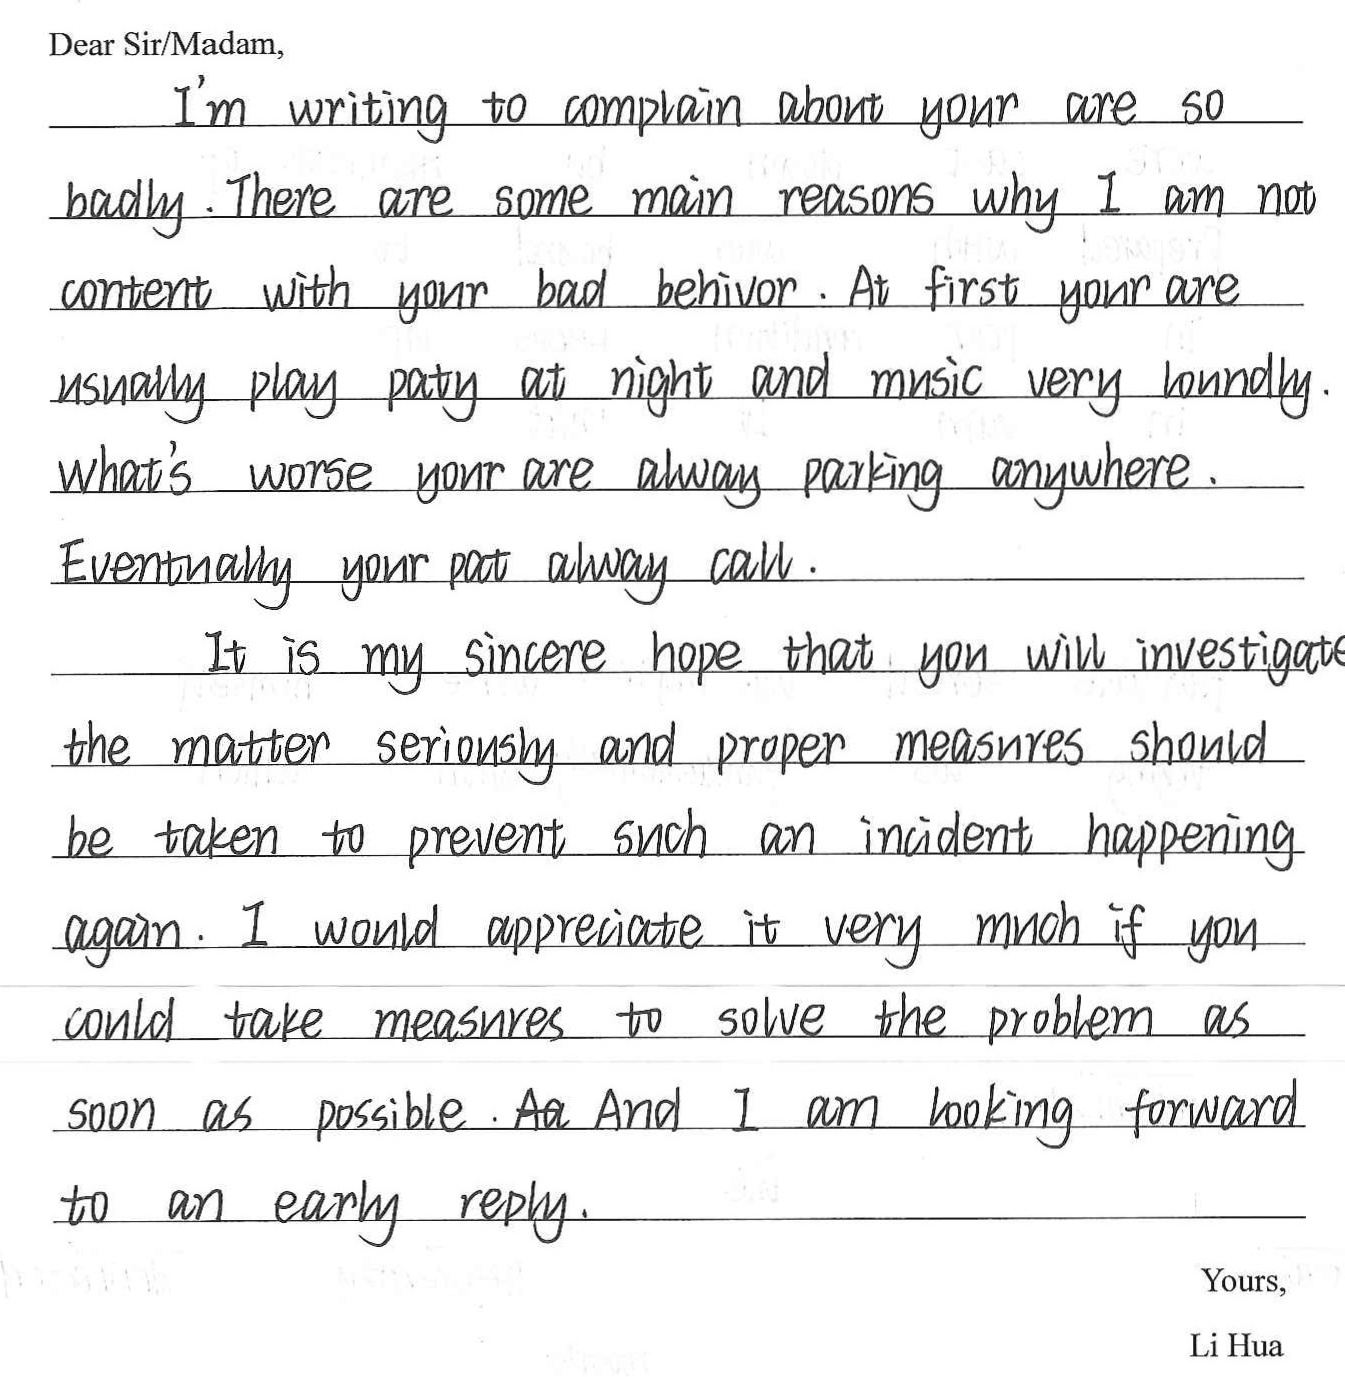 Dear Sir/Madam,
I'm writing to complain about your are so
badly. There are some main reasons why I am not
content with your bad behivor. At first your are
usually play paty at night and music very loundly.
What's worse your are alway parking anywhere.
Eventually your pat alway call.
It is my sincere hope that you will investigate
the matter seriously and proper measures should
be taken to prevent such an incident happening
again. I would appreciate it very much if you
could take measures to solve the problem as
soon as possible. And I am looking forward
to an early reply.
Yours,
Li Hua